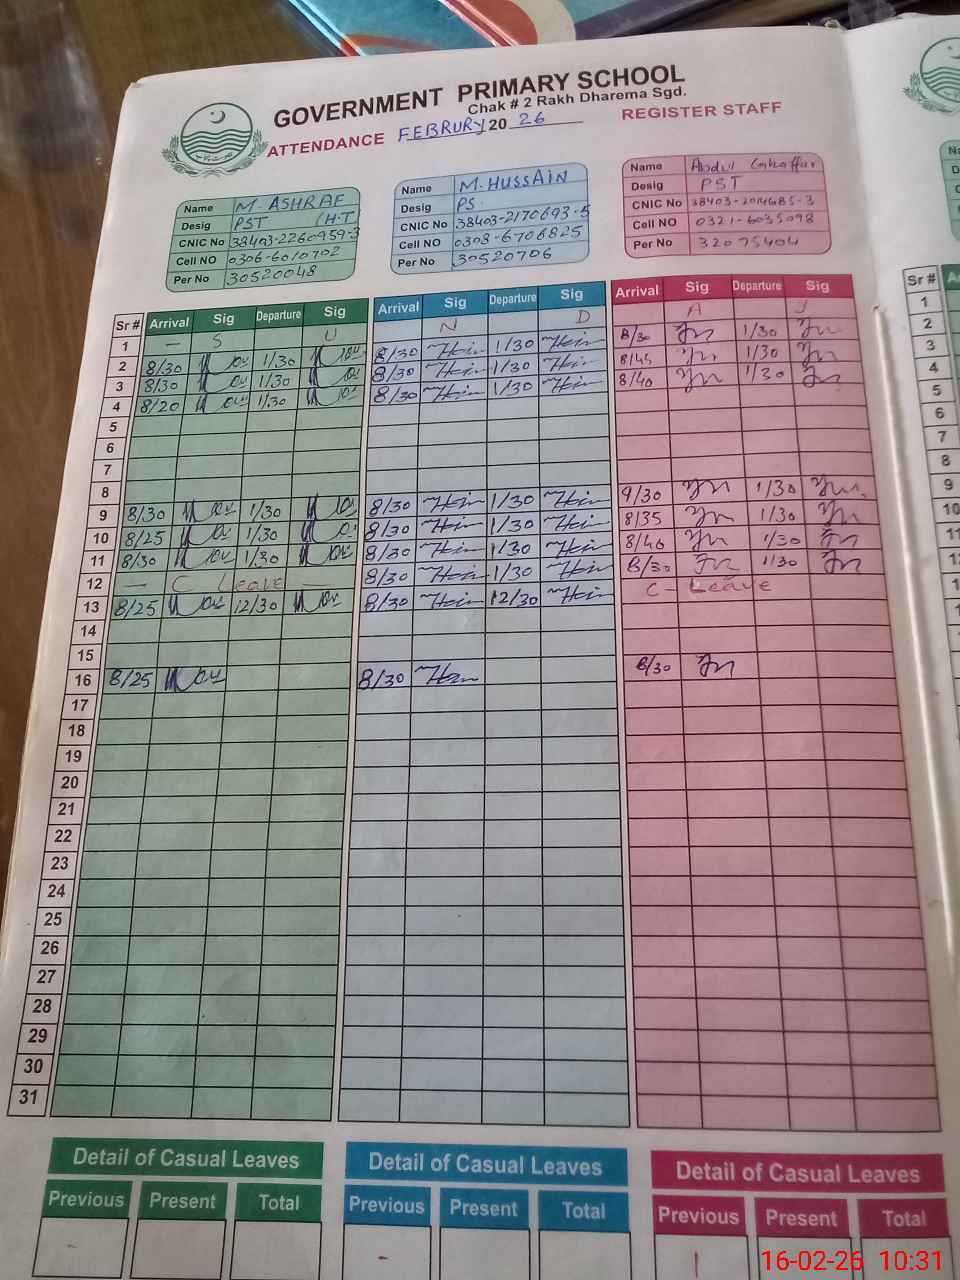 GOVERNMENT PRIMARY SCHOOL
Chak # 2 Rakh Dharema Sgd.
ATTENDANCE FEBRURY 20 26 REGISTER STAFF
Name M. ASHRAF
Desig PST (H.T)
CNIC No 38403-2260959-3
Cell NO 0306-6010702
Per No 30520048
Name M. HUSSAIN
Desig PS.
CNIC No 38403-2170693-5
Cell NO 0308-6706825
Per No 30520706
Name Abdul Ghaffar
Desig PST
CNIC No 38403-2014685-3
Cell NO 0321-6035098
Per No 32075404
Sr # Arrival Sig Departure Sig Arrival Sig Departure Sig Arrival Sig Departure Sig Sr #
1 — S U N D A Y 1
2 8/30 1/30 8/30 1/30 8/30 1/30 2
3 8/30 1/30 8/30 1/30 8/45 1/30 3
4 8/20 1/30 8/30 1/30 8/40 1/30 4
5 5
6 6
7 7
8 8
9 8/30 1/30 8/30 1/30 9/30 1/30 9
10 8/25 1/30 8/30 1/30 8/35 1/30 10
11 8/30 1/30 8/30 1/30 8/40 1/30 11
12 — C Leave — 8/30 1/30 8/30 1/30
13 8/25 12/30 8/30 12/30 C - Leave
14
15
16 8/25 8/30 8/30
17
18
19
20
21
22
23
24
25
26
27
28
29
30
31
Detail of Casual Leaves Detail of Casual Leaves Detail of Casual Leaves
Previous Present Total Previous Present Total Previous Present Total
- - 1
16-02-26 10:31